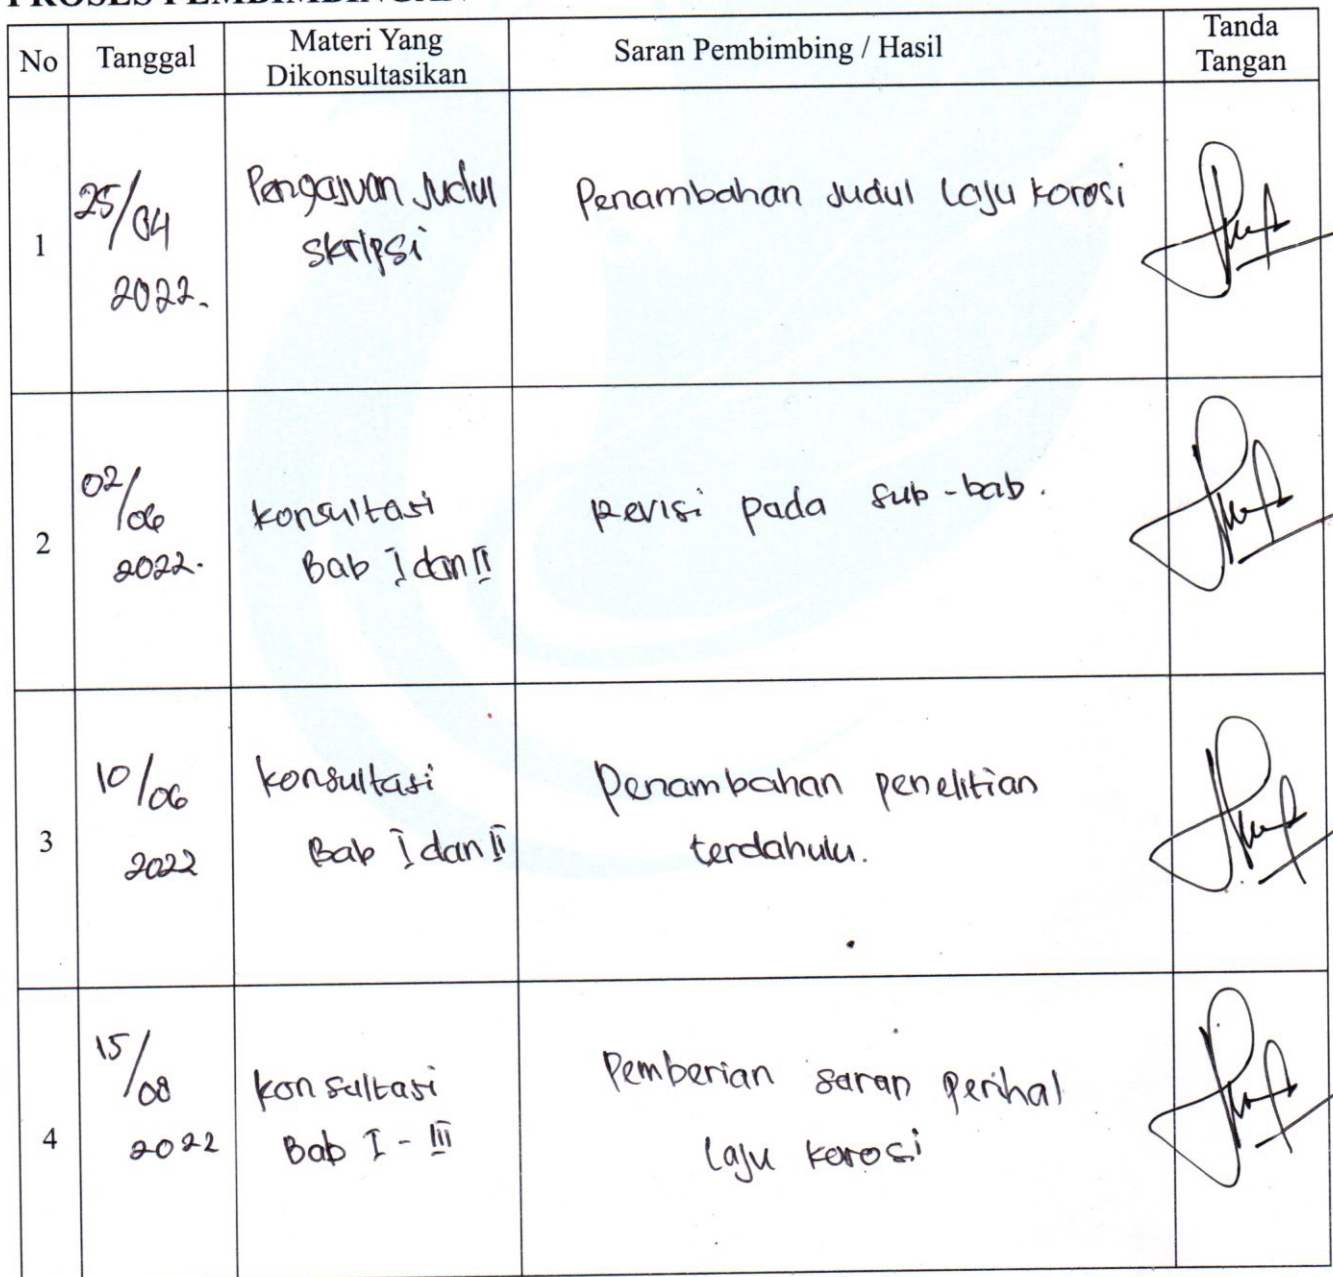 PROSES PEMBIMBINGAN
No Tanggal Materi Yang Dikonsultasikan Saran Pembimbing / Hasil Tanda Tangan
1
25/04
2022.
Pengajuan Judul
skripsi
Penambahan Judul laju korosi
2
02/06
2022.
konsultasi
Bab I dan II
Revisi pada sub-bab.
3
10/06
2022
konsultasi
Bab I dan II
Penambahan penelitian
terdahulu.
4
15/08
2022
konsultasi
Bab I - III
Pemberian saran perihal
laju korosi